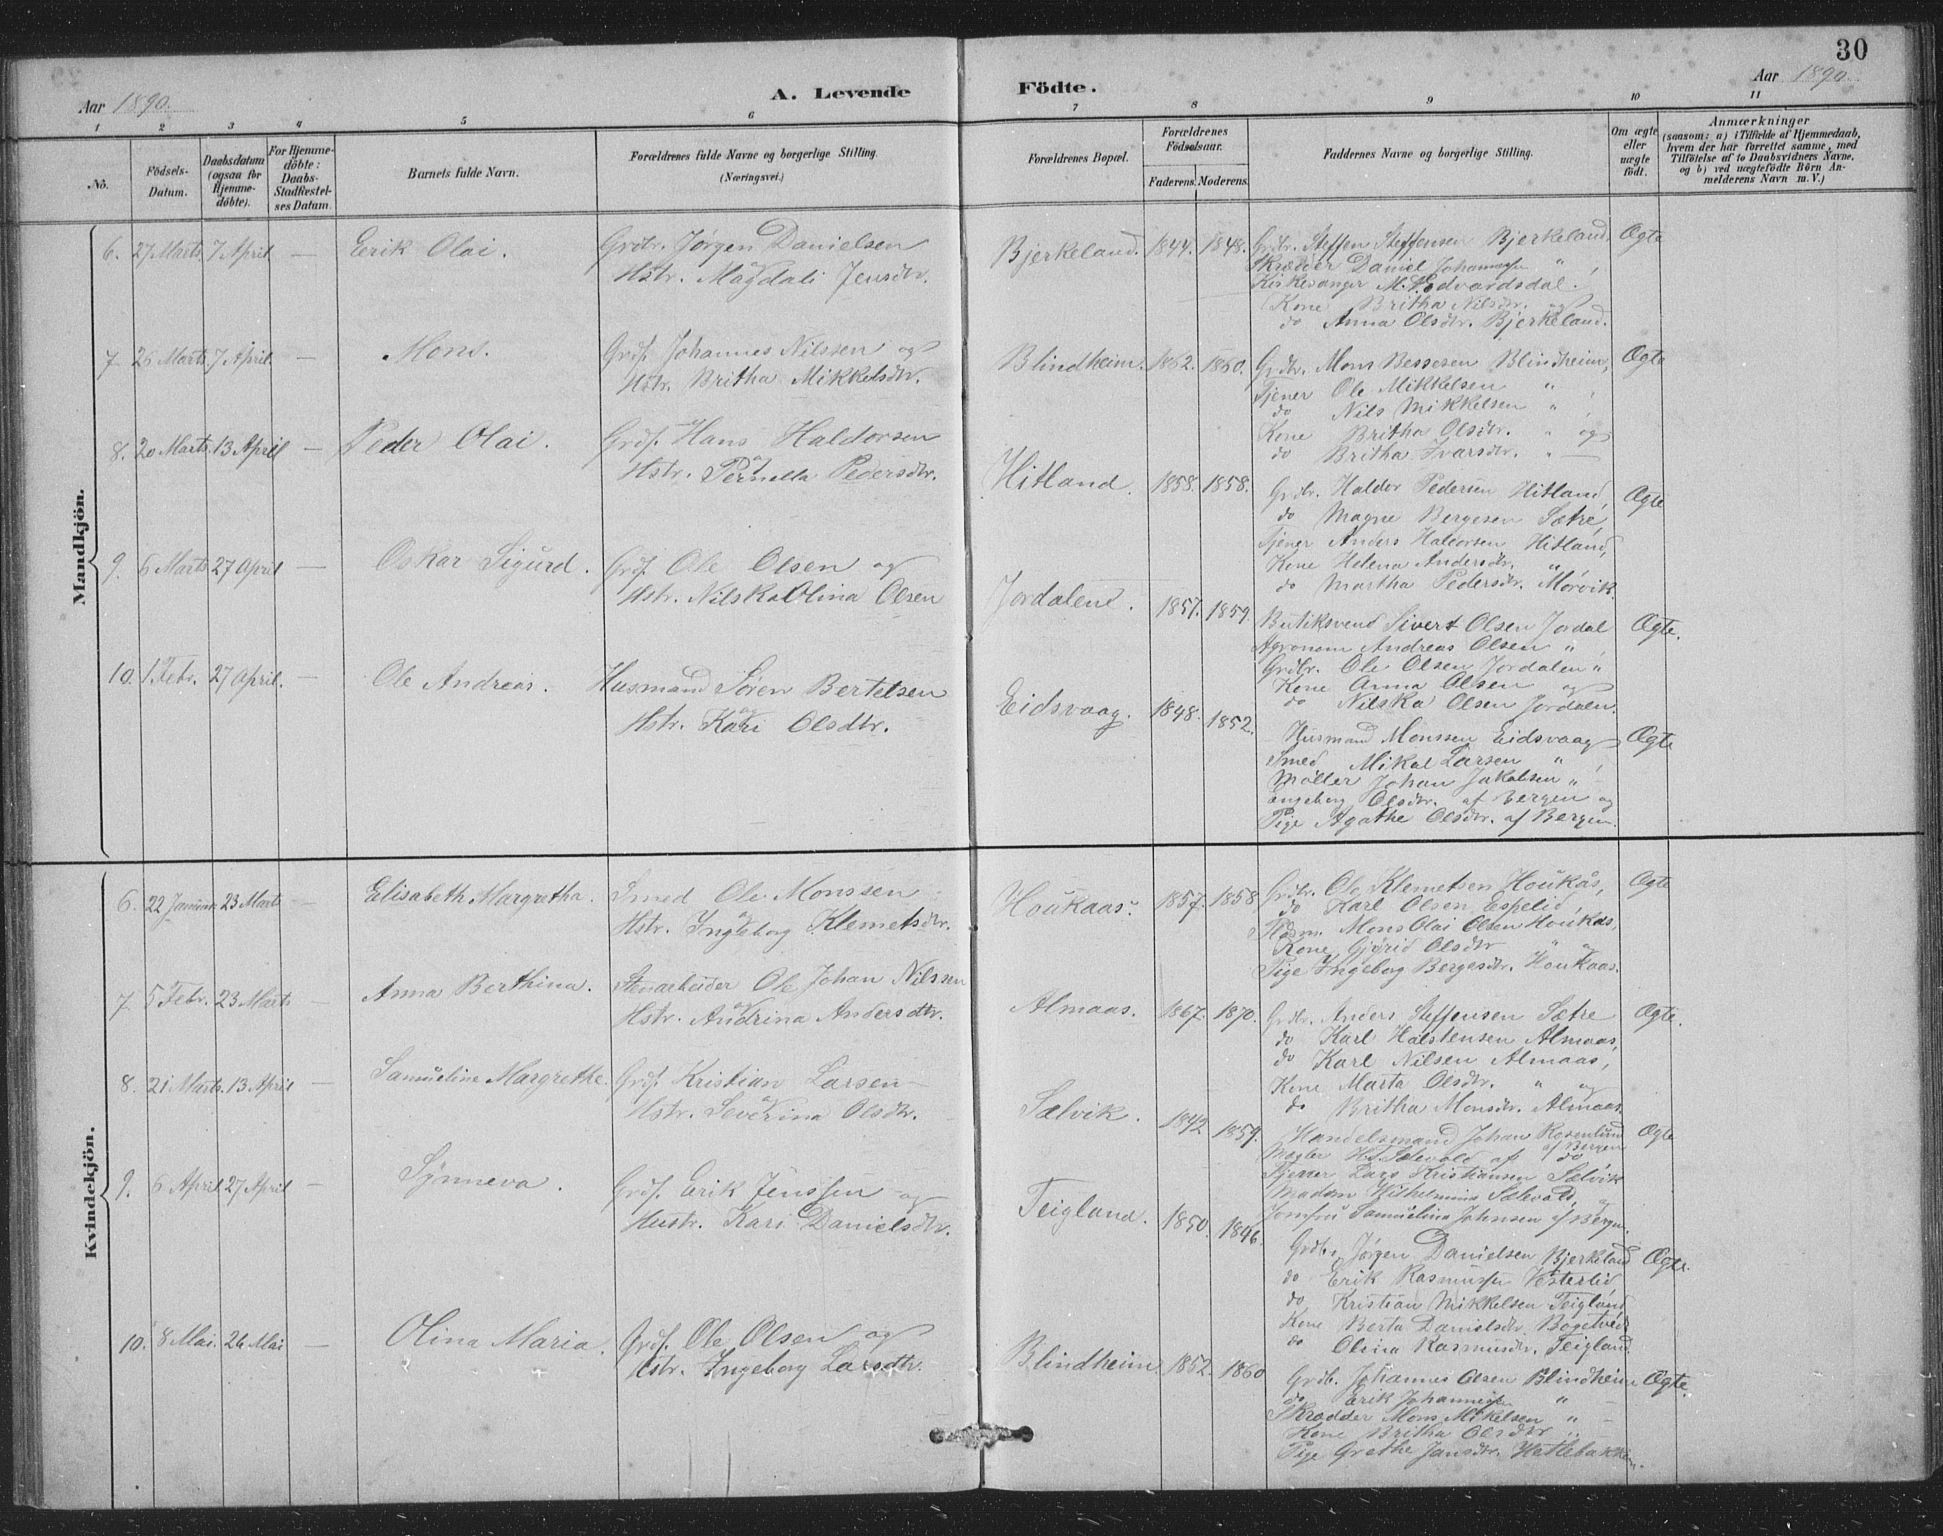 30
Aar 1890. A. Levende Födte. Aar 1890.
1 2 3 4 5 6 7 8 9 10 11
No.
Födsels-Datum.
Daabsdatum (ogsaa for Hjemme-döbte).
For Hjemme-döbte: Daabs-Stadfæstel-ses Datum.
Barnets fulde Navn.
Forældrenes fulde Navne og borgerlige Stilling
(Næringsvei.)
Forældrenes Bopæl.
Forældrenes Födselsaar.
Faderens. Moderens.
Faddernes Navne og borgerlige Stilling.
Om ægte eller uægte födt.
Anmærkninger
(saasom: a) i Tilfælde af Hjemmedaab,
hvem der har forrettet samme, med
Tilföielse af to Daabsvidners Navne,
og b) ved uægtefödte Börn An-
melderens Navn m. V.)
Mandkjön.
6. 27 Marts. 7 April. — Erik Olai. Grdbr. Jørgen Danielsen
og
Hstr. Magdali Jensdtr.
Bjerkeland. 1844. 1848.
Grdbr. Steffen Steffensen Bjerkeland, Ægte
Skrædder Daniel Johannessen " ,
Kirkesanger M. Edvardsdal.
Kone Britha Nilsdtr. og
do Anna Olsdtr. Bjerkeland.
7 26 Marts 7 April. — Mons. Grdf. Johannes Nilssen og
Hstr. Britha Mikkelsdtr.
Blindheim. 1862. 1860.
Grdbr. Mons Bessesen Blindheim, Ægte
Tjener Ole Mikkelsen " ,
do Nils Mikkelsen " ,
Kone Britha Olsdtr. " og
do Britha Ivarsdtr. "
8. 20 Marts. 13 April — Peder Olai. Grdf. Hans Haldorsen
og
Hstr. Pernella Pedersdtr.
Hitland. 1858. 1858.
Grdbr. Haldor Pedersen Hitland, Ægte
do Magne Bergesen Sætre,
Tjener Anders Haldorsen Hitland,
Kone Helena Andersdtr. "
do Martha Pedersdtr. Morvik.
9. 6 Marts 27 April — Oskar Sigurd. Grdf. Ole Olsen og
Hstr. Nilska Olina Olsen
Jordalene. 1857. 1859.
Butiksvend Sivert Olsen Jordal Ægte.
Agronom Andreas Olsen " ,
Grdbr. Ole Olsen Jordalen "
Kone Anna Olsen og
do Nilska Olsen Jordalen.
10. 1 Febr. 27 April. — Ole Andreas. Husmand Søren Bertelsen
og
Hstr. Kari Olsdtr.
Eidsvaag. 1848. 1852.
Husmand Monssen Eidsvaag Ægte
Smed Mikal Larsen " ,
Møller Johan Jakobsen "
Ingeborg Olsdtr. af Bergen og
Pige Agathe Olsdtr. af Bergen.
Kvindekjön.
6. 22 Januar 23 Marts — Elisabeth Margretha. Smed Ole Monssen
og
Hstr. Ingeborg Klemetsdtr.
Houkaas. 1857. 1858
Grdbr. Ole Klemetsen Houkås, Ægte
do Karl Olsen Espelid,
Mons Olai Olsen Houkås,
Kone Gjørid Olsdtr " "
Pige Ingeborg Bergesdtr. Houkaas.
7. 5 Febr. 23 Marts — Anna Berthina. Stenarbeider Ole Johan Nilssen
og
Hstr. Andrina Andersdtr.
Almaas. 1867. 1870.
Grdbr. Anders Steffensen Sætre Ægte.
do Karl Halstensen Almaas,
do Karl Nilsen Almaas,
Kone Marta Olsdtr. " og
do Britha Monsdtr. Almaas.
8. 21 Marts. 13 April — Samueline Margrethe. Grdf. Kristian Larsen
og
Hstr. Severina Olsdtr.
Sælvik. 1842 1859.
Handelsmand Johan Rosenlund Ægte
af Bergen
Mægler Sælevold af do
Tjener Lars Kristiansen Sælvik
Madam Wilhelmina Sælevold, og
Jomfru Samuelina Johnsen af Bergen.
9. 6 April 27 April — Synneva. Grdf. Erik Jenssen og
Hustr. Kari Danielsdtr.
Teigland. 1850. 1846.
Grdbr. Jørgen Danielsen Bjerkeland Ægte.
do Erik Rasmussen Vesterlid
do Kristian Mikkelsen Teigland
Kone Berta Danielsdtr.
do Olina Rasmusdtr. Teigland.
10. 8 Mai. 26 Mai — Olina Maria. Grdf. Ole Olsen og
Hstr. Ingeborg Larsdtr.
Blindheim. 1852. 1860
Grdb. Johannes Olsen Blindheim Ægte.
do Erik Johannessen " —
Skrædder Mons Mikelsen " —
Kone Britha Olsdtr "
Pige Grethe Jansdtr. Hatlebakken.